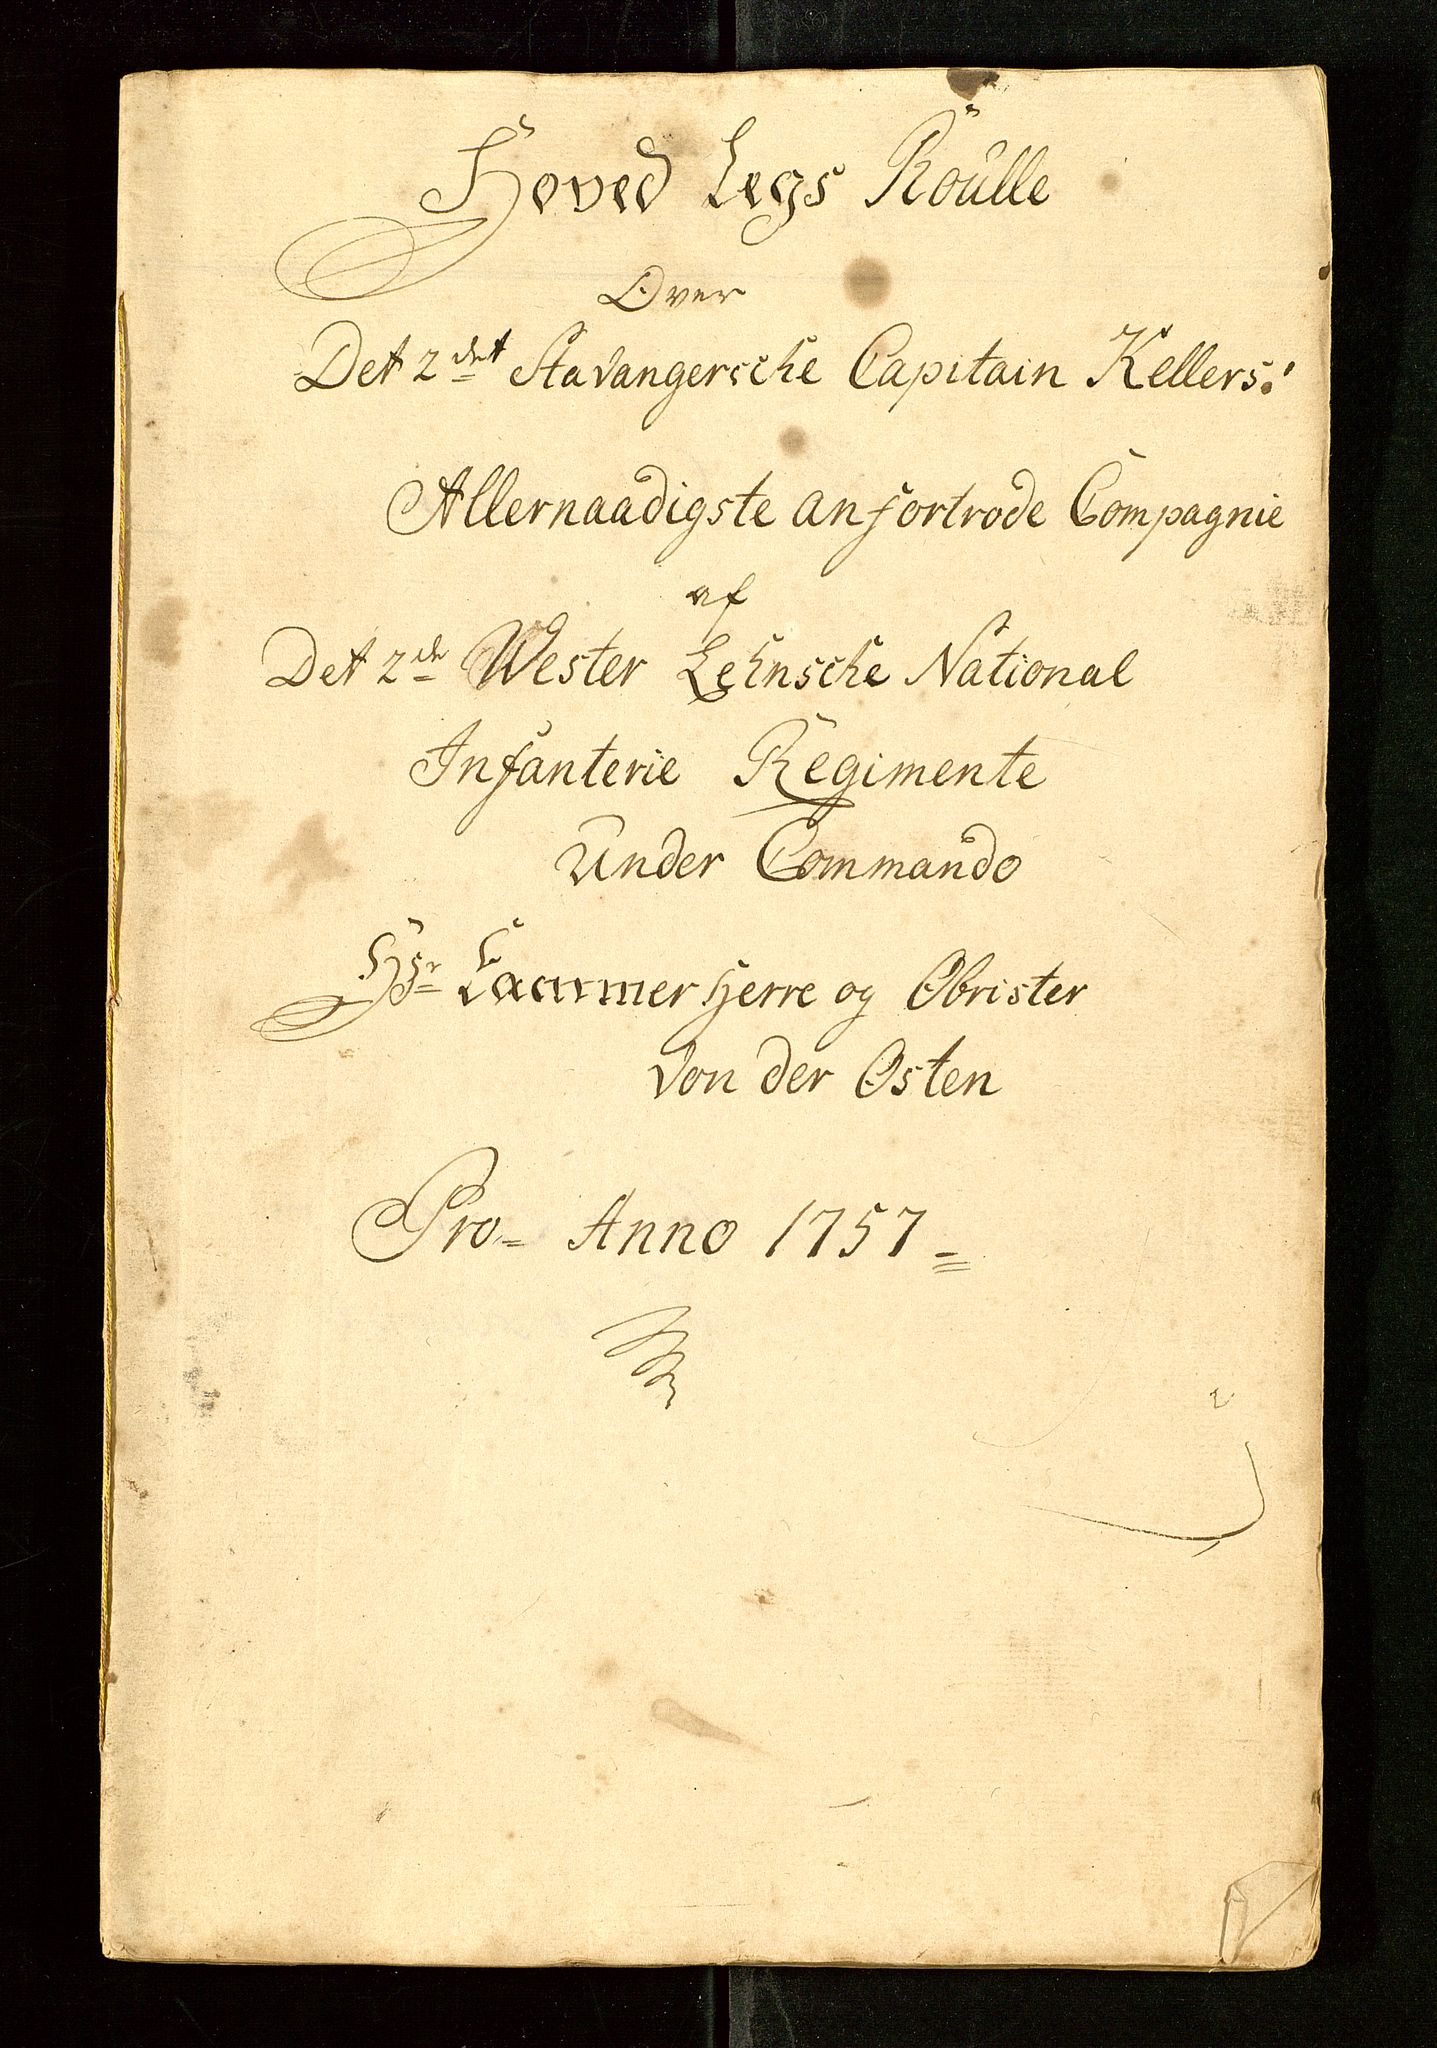 Hoved Legs Roulle
Over
Det 2det Stavangersche Capitain Kellers:
Allernaadigste anfortrode Compagnie
af
Det 2de Wester Lehnsche National
Infanterie Regimente
Under Commando
Hr Cammer Herre og Obrister
Von der Osten
Pro= Anno 1757=